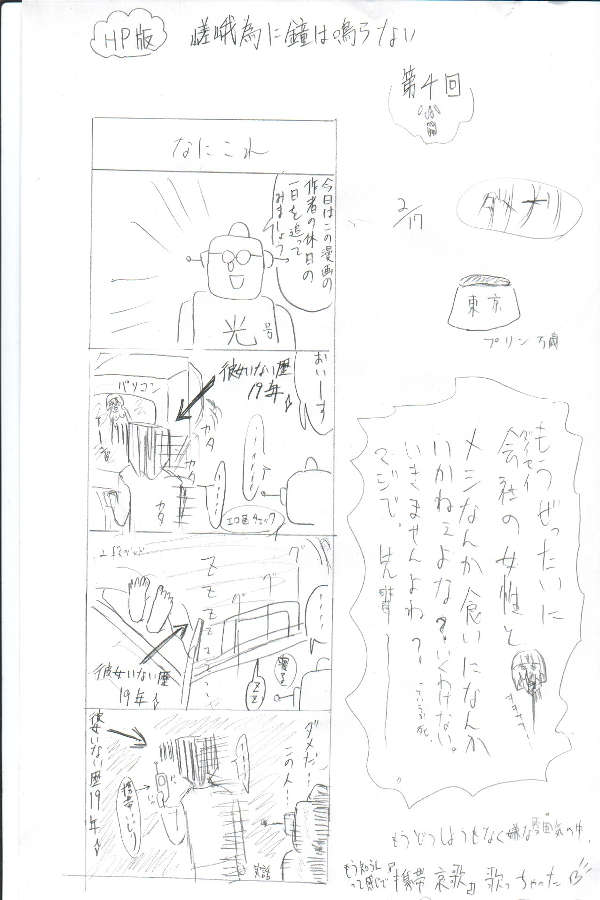 HP版
嵯峨為に鐘は鳴らない
第4回
なにこれ
今日はこの漫画の
作者の休日の
一日を追って
みましょう
光号
おいーす
彼女いない歴
19年
パソコン
カタ
カタ
エロ画チェック
グー
グー
Z Z Z Z Z
彼女いない歴
19年
寝る
ZZ
ダメだ…
この人…
彼女いない歴19年
携帯いじり
実話
2/17
東京
プリン万歳
もうぜったいに
会社の女性と
メシなんか食いになんか
いかねぇよな?いくわけない。
いきませんよね?
マジで。
もうどうしようもなく嫌な雰囲気の中、
って感じで携帯哀歌歌っちゃった